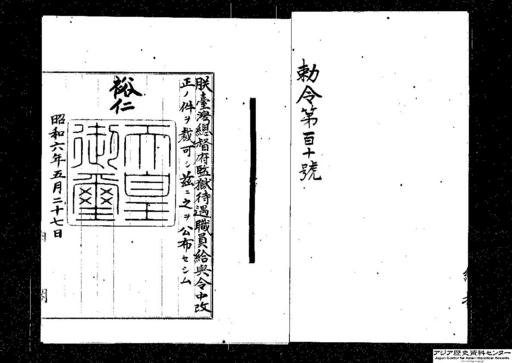 勅令第百十號
朕臺灣總督府監獄待遇職員給與令中改
正ノ件ヲ裁可シ玆ニ之ヲ公布セシム
裕仁
天皇
御璽
昭和六年五月二十七日
アジア歴史資料センター
Japan Center for Asian Historical Records